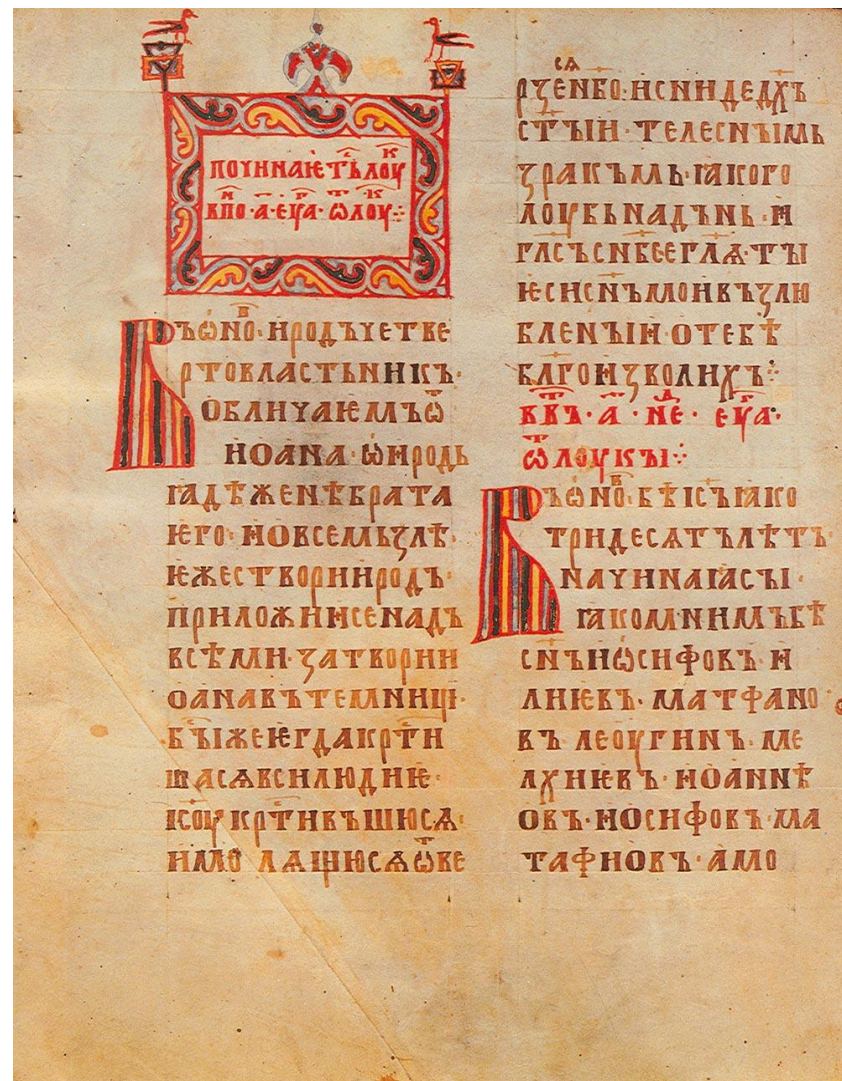 почнаѥтьлоук
впо·а҃·еѵа·ѿлоуⷦ҇·:
Въѡ́но·иродъчетве
ртовластьникъ·
обличаѥмъѿ
иоана·ѡиродь
ꙗдѣженѣбрата
ѥго·иовсемьꙁлѣ·
ѥжестворииродъ·
приложиисенадъ
всѣми·ꙁатвории
оанавътемници·
быжеѥгдакрⷭ҇ти
шасѧвсилюдиѥ·
ісоукрⷭ҇тивъшюсѧ·
имо лѧщюсѧѿве
рꙁенбо·иснидедх҃ъ
сты҃и·телеснымь
ꙁракъмь·ꙗкого
лоубьнадънь·и
гласъснбсеглѧ·ты
ѥсисн҃ъмоивъꙁлю
бленыи·отебѣ
блг҃оиꙁволихъ·:
ввъ·а҃·не·еѵа·
ѿлоукы·:
Въѡ́но·бѣіс҃ъꙗко
тридесѧтълѣтъ·
начинаꙗсы·
ꙗкомнимъбѣ
сн҃ъиѡсифовъ·и
лиѥвъ·матфано
въ леоугиинъ·ме
лхиѥвъ·иоаннѣ
овъ·иосифовъ·ма
тафиовъ·амо